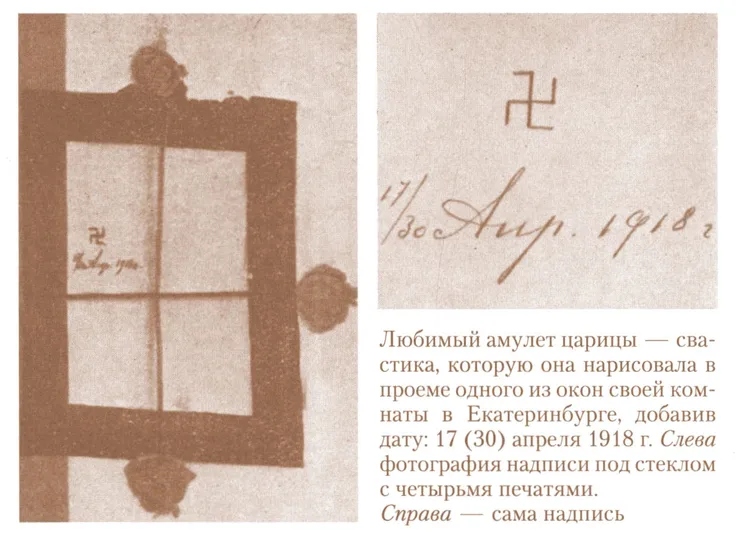 17/30 Апр. 1918 г
17/30 Апр. 1918 г.
Любимый амулет царицы — сва-
стика, которую она нарисовала в
проеме одного из окон своей ком-
наты в Екатеринбурге, добавив
дату: 17 (30) апреля 1918 г. Слева
фотография надписи под стеклом
с четырьмя печатями.
Справа — сама надпись